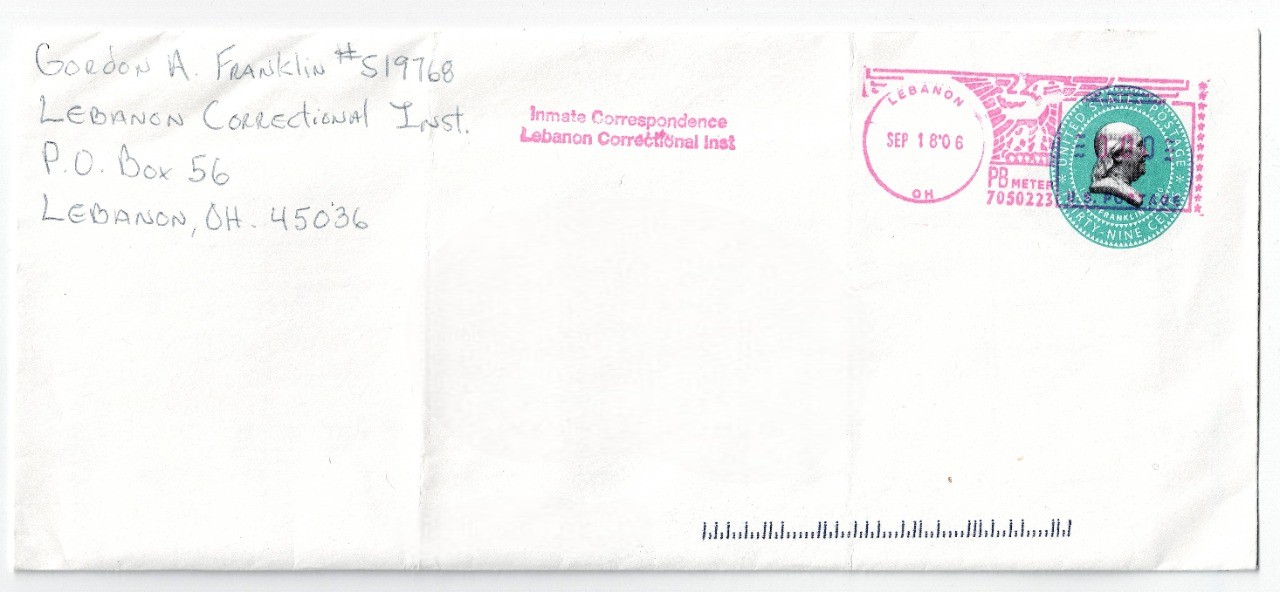 Gordon A. Franklin #519768
Lebanon Correctional Inst.
P.O. Box 56
Lebanon, OH. 45036
Inmate Correspondence
Lebanon Correctional Inst
LEBANON
SEP 18'06
OH
PB METER
7050223
U.S. POSTAGE
UNITED STATES POSTAGE
FRANKLIN
THIRTY-NINE CENTS